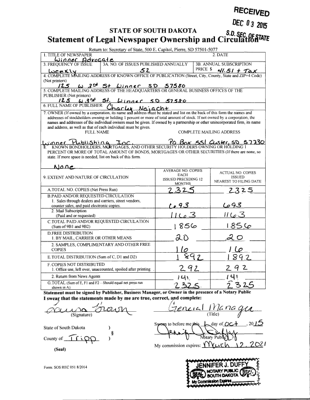 RECEIVED
DEC 03 2015
S.D. SEC. OF STATE
STATE OF SOUTH DAKOTA
Statement of Legal Newspaper Ownership and Circulation
Return to: Secretary of State, 500 E. Capitol, Pierre, SD 57501-5077
1. TITLE OF NEWSPAPER
2. DATE
Winner Advocate
3. FREQUENCY OF ISSUE
3A. NO. OF ISSUES PUBLISHED ANNUALLY
3B. ANNUAL SUBSCRIPTION
Weekly
52
PRICE $ 41.51 + Tax
4. COMPLETE MAILING ADDRESS OF KNOWN OFFICE OF PUBLICATION (Street, City, County, State and ZIP+4 Code)
(Not printers)
125 W 3rd St Winner SD 57580
5. COMPLETE MAILING ADDRESS OF THE HEADQUARTERS OR GENERAL BUSINESS OFFICES OF THE
PUBLISHER (Not printers)
125 W 3rd St. Winner SD 57580
6. FULL NAME OF PUBLISHER: Charley Najacht
7. OWNER (If owned by a corporation, its name and address must be stated and also the names and
addresses of stockholders owning or holding 1 percent or more of total amount of stock. If not owned by a corporation, the
names and addresses of the individual owners must be given. If owned by a partnership or other unincorporated firm, its name
and address, as well as that of each individual must be given.
FULL NAME
COMPLETE MAILING ADDRESS
Winner Publishing Inc.
Po Box 551 Custer, SD 57730
8. KNOWN BONDHOLDERS, MORTGAGES, AND OTHER SECURITY HOLDERS OWNING OR HOLDING 1
PERCENT OR MORE OF TOTAL AMOUNT OF BONDS, MORTGAGES OR OTHER SECURITIES (If there are none, so
state. If more space is needed, list on back of this form.
None
9. EXTENT AND NATURE OF CIRCULATION
AVERAGE NO. COPIES
EACH
ISSUED PRECEDING 12
MONTHS
ACTUAL NO. COPIES
ISSUED
NEAREST TO FILING DATE
A. TOTAL NO. COPIES (Net Press Run)
2,325
2325
B. PAID AND/OR REQUESTED CIRCULATION
1. Sales through dealers and carriers, street vendors,
counter sales, and paid electronic copies.
693
693
2. Mail Subscription
(Paid and or requested)
1163
1163
C. TOTAL PAID AND/OR REQUESTED CIRCULATION
(Sum of 9B1 and 9B2)
1856
1856
D. FREE DISTRIBUTION
1. BY MAIL, CARRIER OR OTHER MEANS
20
20
2. SAMPLES, COMPLIMENTARY AND OTHER FREE
COPIES
16
16
E. TOTAL DISTRIBUTION (Sum of C, D1 and D2)
1892
1892
F. COPIES NOT DISTRIBUTED
1. Office use, left over, unaccounted, spoiled after printing
292
292
2. Return from News Agents
141
141
G. TOTAL (Sum of E, F1 and F2 - Should equal net press run
shown in A)
2325
2325
Statement must be signed by Publisher, Business Manager, or Owner in the presence of a Notary Public
I swear that the statements made by me are true, correct, and complete:
Laura Brown
General Manager
(Signature)
(Title)
State of South Dakota )
Sworn to before me this day of Oct 2015
County of Tripp )
Notary Public
(Seal)
My commission expires: March 12, 2021
JENNIFER J. DUFFY
NOTARY PUBLIC
SOUTH DAKOTA
My Commission Expires